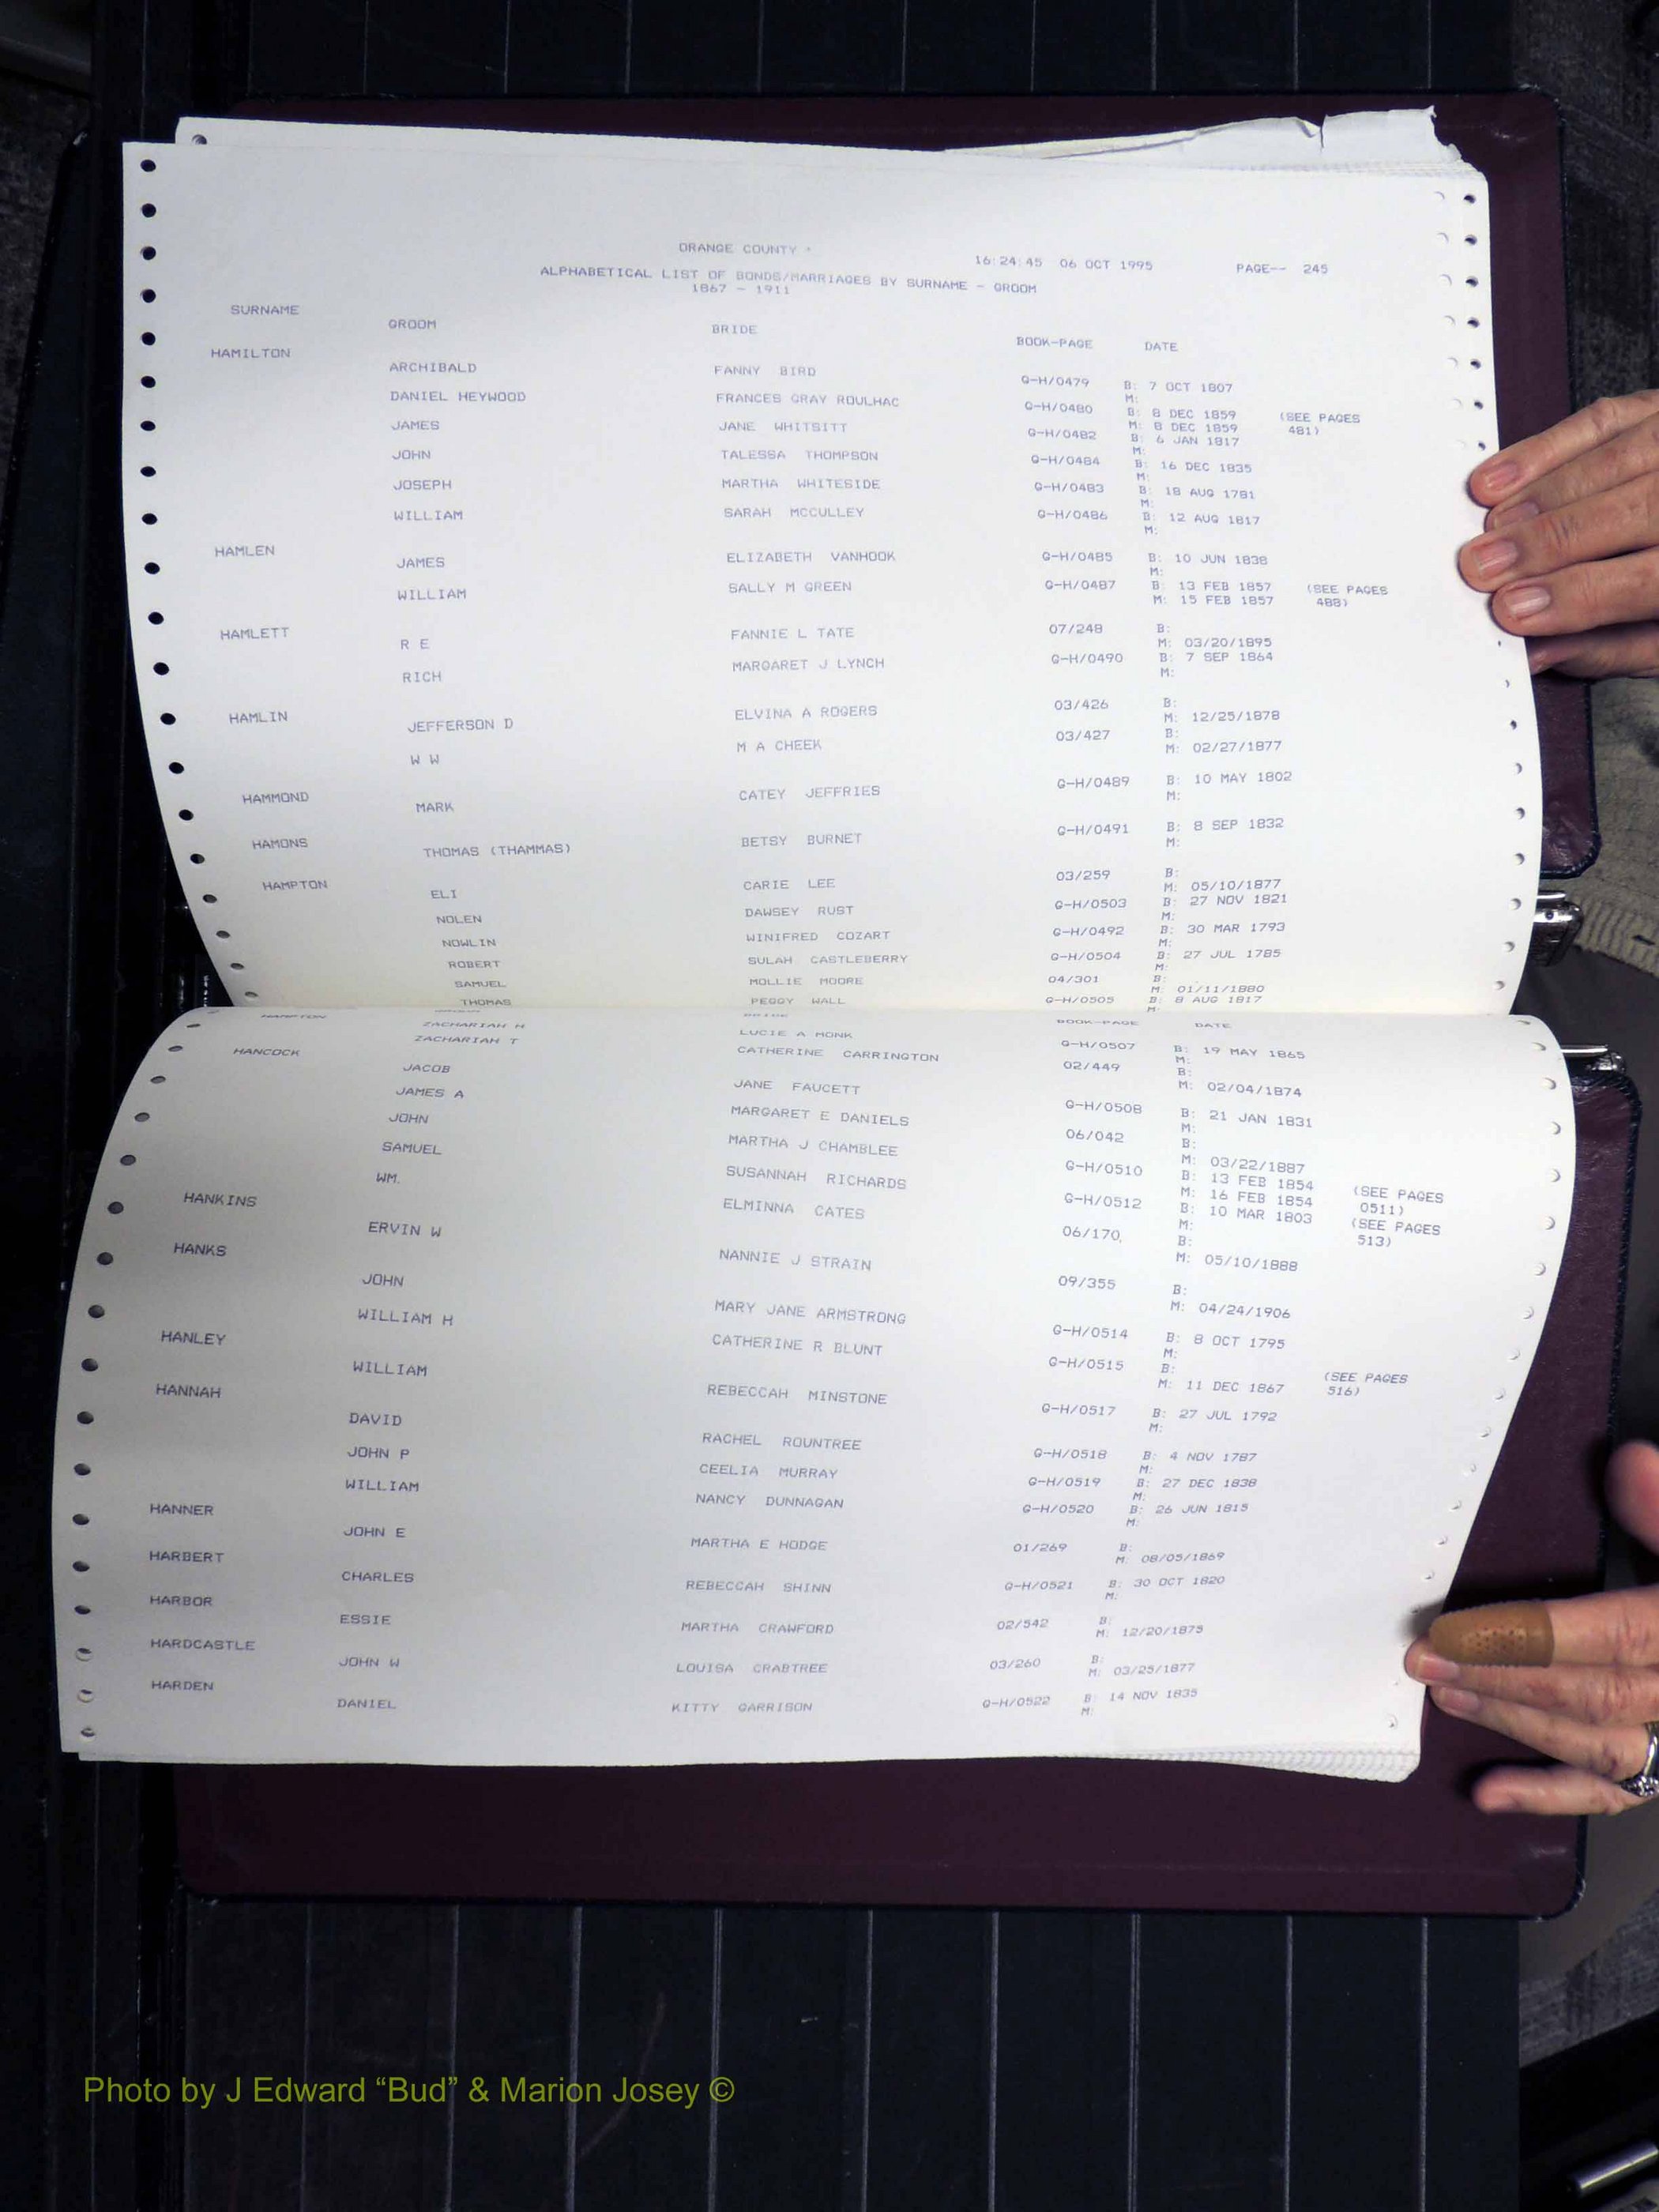 ORANGE COUNTY *
16:24:45 06 OCT 1995 PAGE-- 245
ALPHABETICAL LIST OF BONDS/MARRIAGES BY SURNAME - GROOM
1867 - 1911
SURNAME GROOM BRIDE BOOK-PAGE DATE
HAMILTON ARCHIBALD FANNY BIRD G-H/0479 B: 7 OCT 1807
M:
DANIEL HEYWOOD FRANCES GRAY ROULHAC G-H/0480 B: 8 DEC 1859 (SEE PAGES
M: 8 DEC 1859 481)
JAMES JANE WHITSITT G-H/0482 B: 6 JAN 1817
M:
JOHN TALESSA THOMPSON G-H/0484 B: 16 DEC 1835
M:
JOSEPH MARTHA WHITESIDE G-H/0483 B: 18 AUG 1781
M:
WILLIAM SARAH MCCULLEY G-H/0486 B: 12 AUG 1817
M:
HAMLEN JAMES ELIZABETH VANHOOK G-H/0485 B: 10 JUN 1838
M:
WILLIAM SALLY M GREEN G-H/0487 B: 13 FEB 1857 (SEE PAGES
M: 15 FEB 1857 488)
HAMLETT R E FANNIE L TATE 07/248 B:
M: 03/20/1895
RICH MARGARET J LYNCH G-H/0490 B: 7 SEP 1864
M:
HAMLIN JEFFERSON D ELVINA A ROGERS 03/426 B:
M: 12/25/1878
W W M A CHEEK 03/427 B:
M: 02/27/1877
HAMMOND MARK CATEY JEFFRIES G-H/0489 B: 10 MAY 1802
M:
HAMONS THOMAS (THAMMAS) BETSY BURNET G-H/0491 B: 8 SEP 1832
M:
HAMPTON ELI CARIE LEE 03/259 B:
M: 05/10/1877
NOLEN DAWSEY RUST G-H/0503 B: 27 NOV 1821
M:
NOWLIN WINIFRED COZART G-H/0492 B: 30 MAR 1793
M:
ROBERT SULAH CASTLEBERRY G-H/0504 B: 27 JUL 1785
M:
SAMUEL MOLLIE MOORE 04/301 B:
M: 01/11/1880
THOMAS PEGGY WALL G-H/0505 B: 8 AUG 1817
M:
BOOK-PAGE DATE
HAMPTON ZACHARIAH H LUCIE A MONK G-H/0507 B: 19 MAY 1865
M:
ZACHARIAH T CATHERINE CARRINGTON 02/449 B:
M: 02/04/1874
HANCOCK JACOB JANE FAUCETT G-H/0508 B: 21 JAN 1831
M:
JAMES A MARGARET E DANIELS 06/042 B:
M: 03/22/1887
JOHN MARTHA J CHAMBLEE G-H/0510 B: 13 FEB 1854 (SEE PAGES
M: 16 FEB 1854 0511)
SAMUEL SUSANNAH RICHARDS G-H/0512 B: 10 MAR 1803 (SEE PAGES
M: 513)
WM. ELMINNA CATES 06/170 B:
M: 05/10/1888
HANKINS ERVIN W NANNIE J STRAIN 09/355 B:
M: 04/24/1906
HANKS JOHN MARY JANE ARMSTRONG G-H/0514 B: 8 OCT 1795
M:
WILLIAM H CATHERINE R BLUNT G-H/0515 B: (SEE PAGES
M: 11 DEC 1867 516)
HANLEY WILLIAM REBECCAH MINSTONE G-H/0517 B: 27 JUL 1792
M:
HANNAH DAVID RACHEL ROUNTREE G-H/0518 B: 4 NOV 1787
M:
JOHN P CEELIA MURRAY G-H/0519 B: 27 DEC 1838
M:
WILLIAM NANCY DUNNAGAN G-H/0520 B: 26 JUN 1815
M:
HANNER JOHN E MARTHA E HODGE 01/269 B:
M: 08/05/1869
HARBERT CHARLES REBECCAH SHINN G-H/0521 B: 30 OCT 1820
M:
HARBOR ESSIE MARTHA CRAWFORD 02/542 B:
M: 12/20/1875
HARDCASTLE JOHN W LOUISA CRABTREE 03/260 B:
M: 03/25/1877
HARDEN DANIEL KITTY GARRISON G-H/0522 B: 14 NOV 1835
M:
Photo by J Edward “Bud” & Marion Josey ©